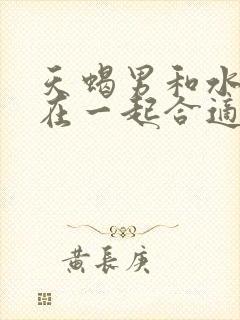 天蝎男和水
在一起合适
黄长庚